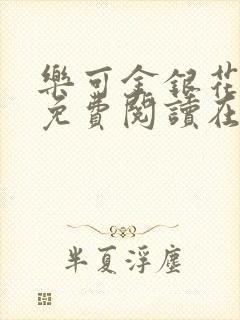 樂可金銀花
免費閱讀在
半夏浮塵